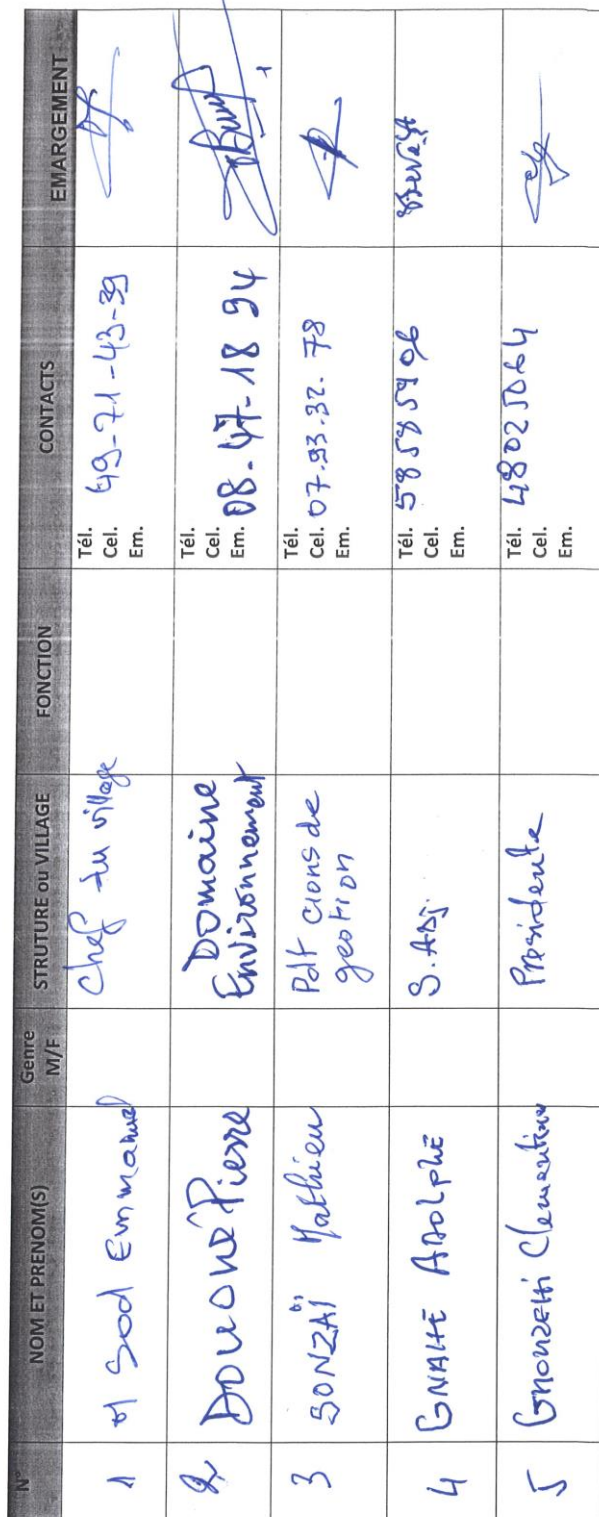 N° NOM ET PRENOM(S) Genre M/F STRUTURE ou VILLAGE FONCTION CONTACTS EMARGEMENT
1 Sod Emmanuel Chef du village Tél. Cel. Em. 49-71-43-39
2 Douoné Pierre Domaine Environnement Tél. Cel. Em. 08-47-18 94
3 SONZAÏ Mathieu Pdt cions de gestion Tél. Cel. Em. 07.93.32.78
4 GNAHE ADOLPHE S.ADJ. Tél. Cel. Em. 58585906
5 Clementine Presidente Tél. Cel. Em. 48025064